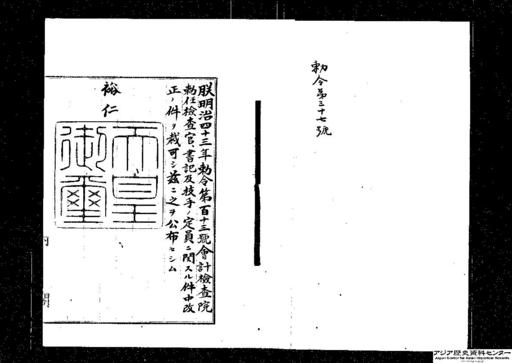 勅令第三十七號
朕明治四十三年勅令第百十三號會計檢査院
勅任檢査官、書記及技手ノ定員ニ関スル件中改
正ノ件ヲ裁可シ茲ニ之ヲ公布セシム
裕仁
天皇
御璽
内閣
アジア歴史資料センター
Japan Center for Asian Historical Records